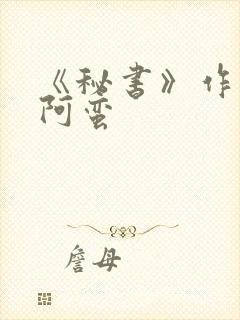 《秘书》作
阿蛮
詹母